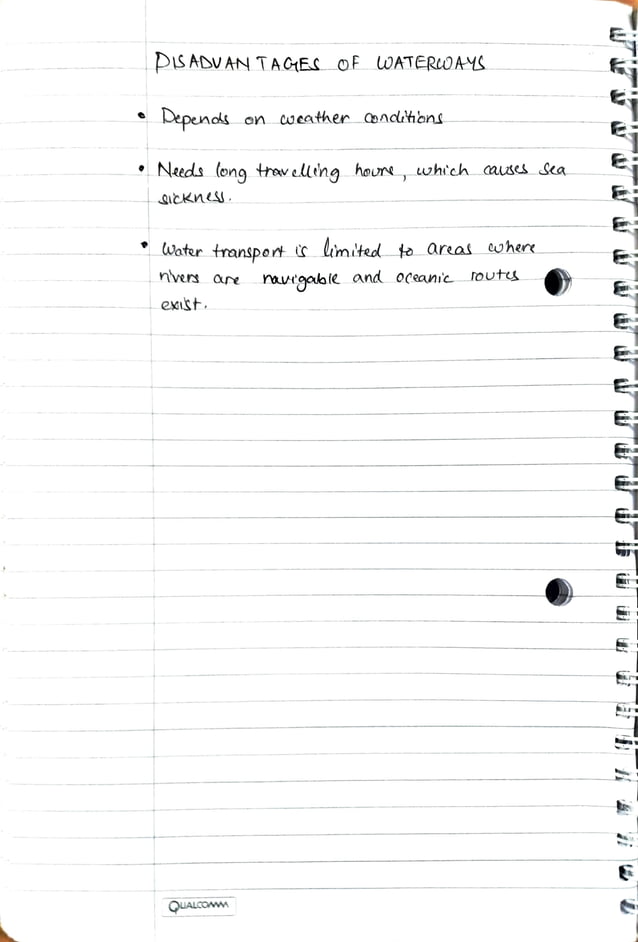 DISADVANTAGES OF WATERWAYS
• Depends on weather conditions
• Needs long travelling hours, which causes sea
sickness.
• Water transport is limited to areas where
rivers are navigable and oceanic routes
exist.
QUALCOMM